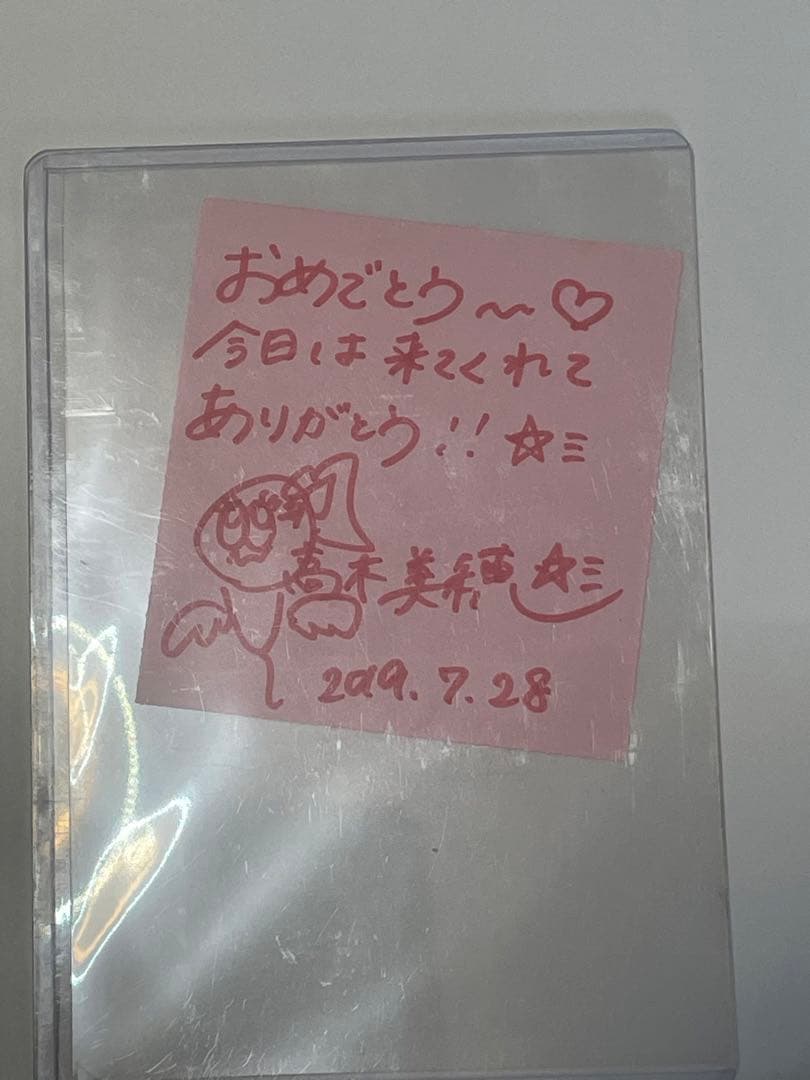 おめでとう〜♡
今日は来てくれて
ありがとう!!☆ミ
高木美穂☆ミ
2019.7.28